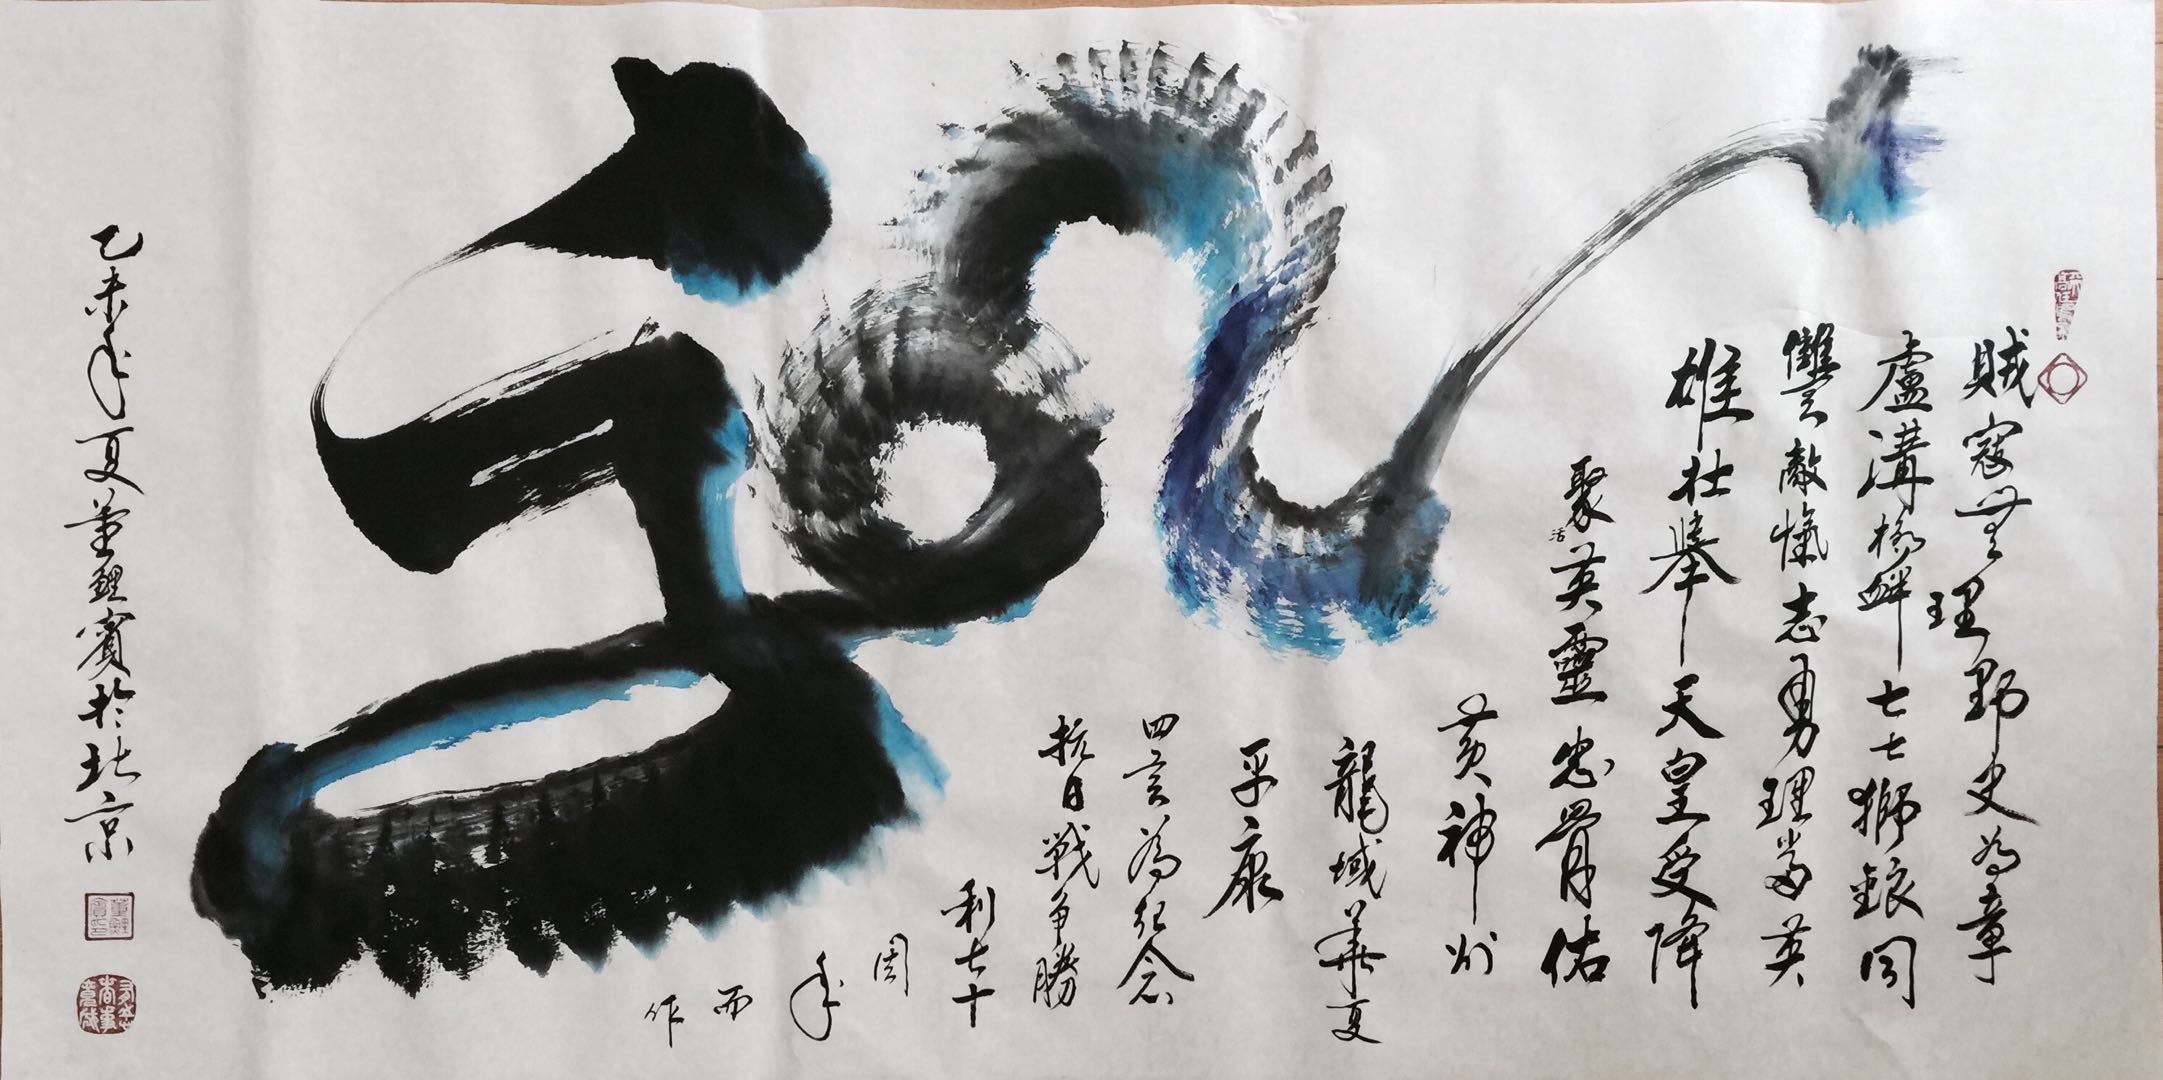 賊寇無理野史為章
盧溝橋畔七七獅鋃同
讐敵愾志勇理當英
雄壮舉天皇受降
聚英靈忠骨佑
活
黄神州
龍域華夏
平康
四言為紀念
抗日戦争勝
利七十
周
年
而
作
乙未年夏董鯉賓於北京
董鯉賓印